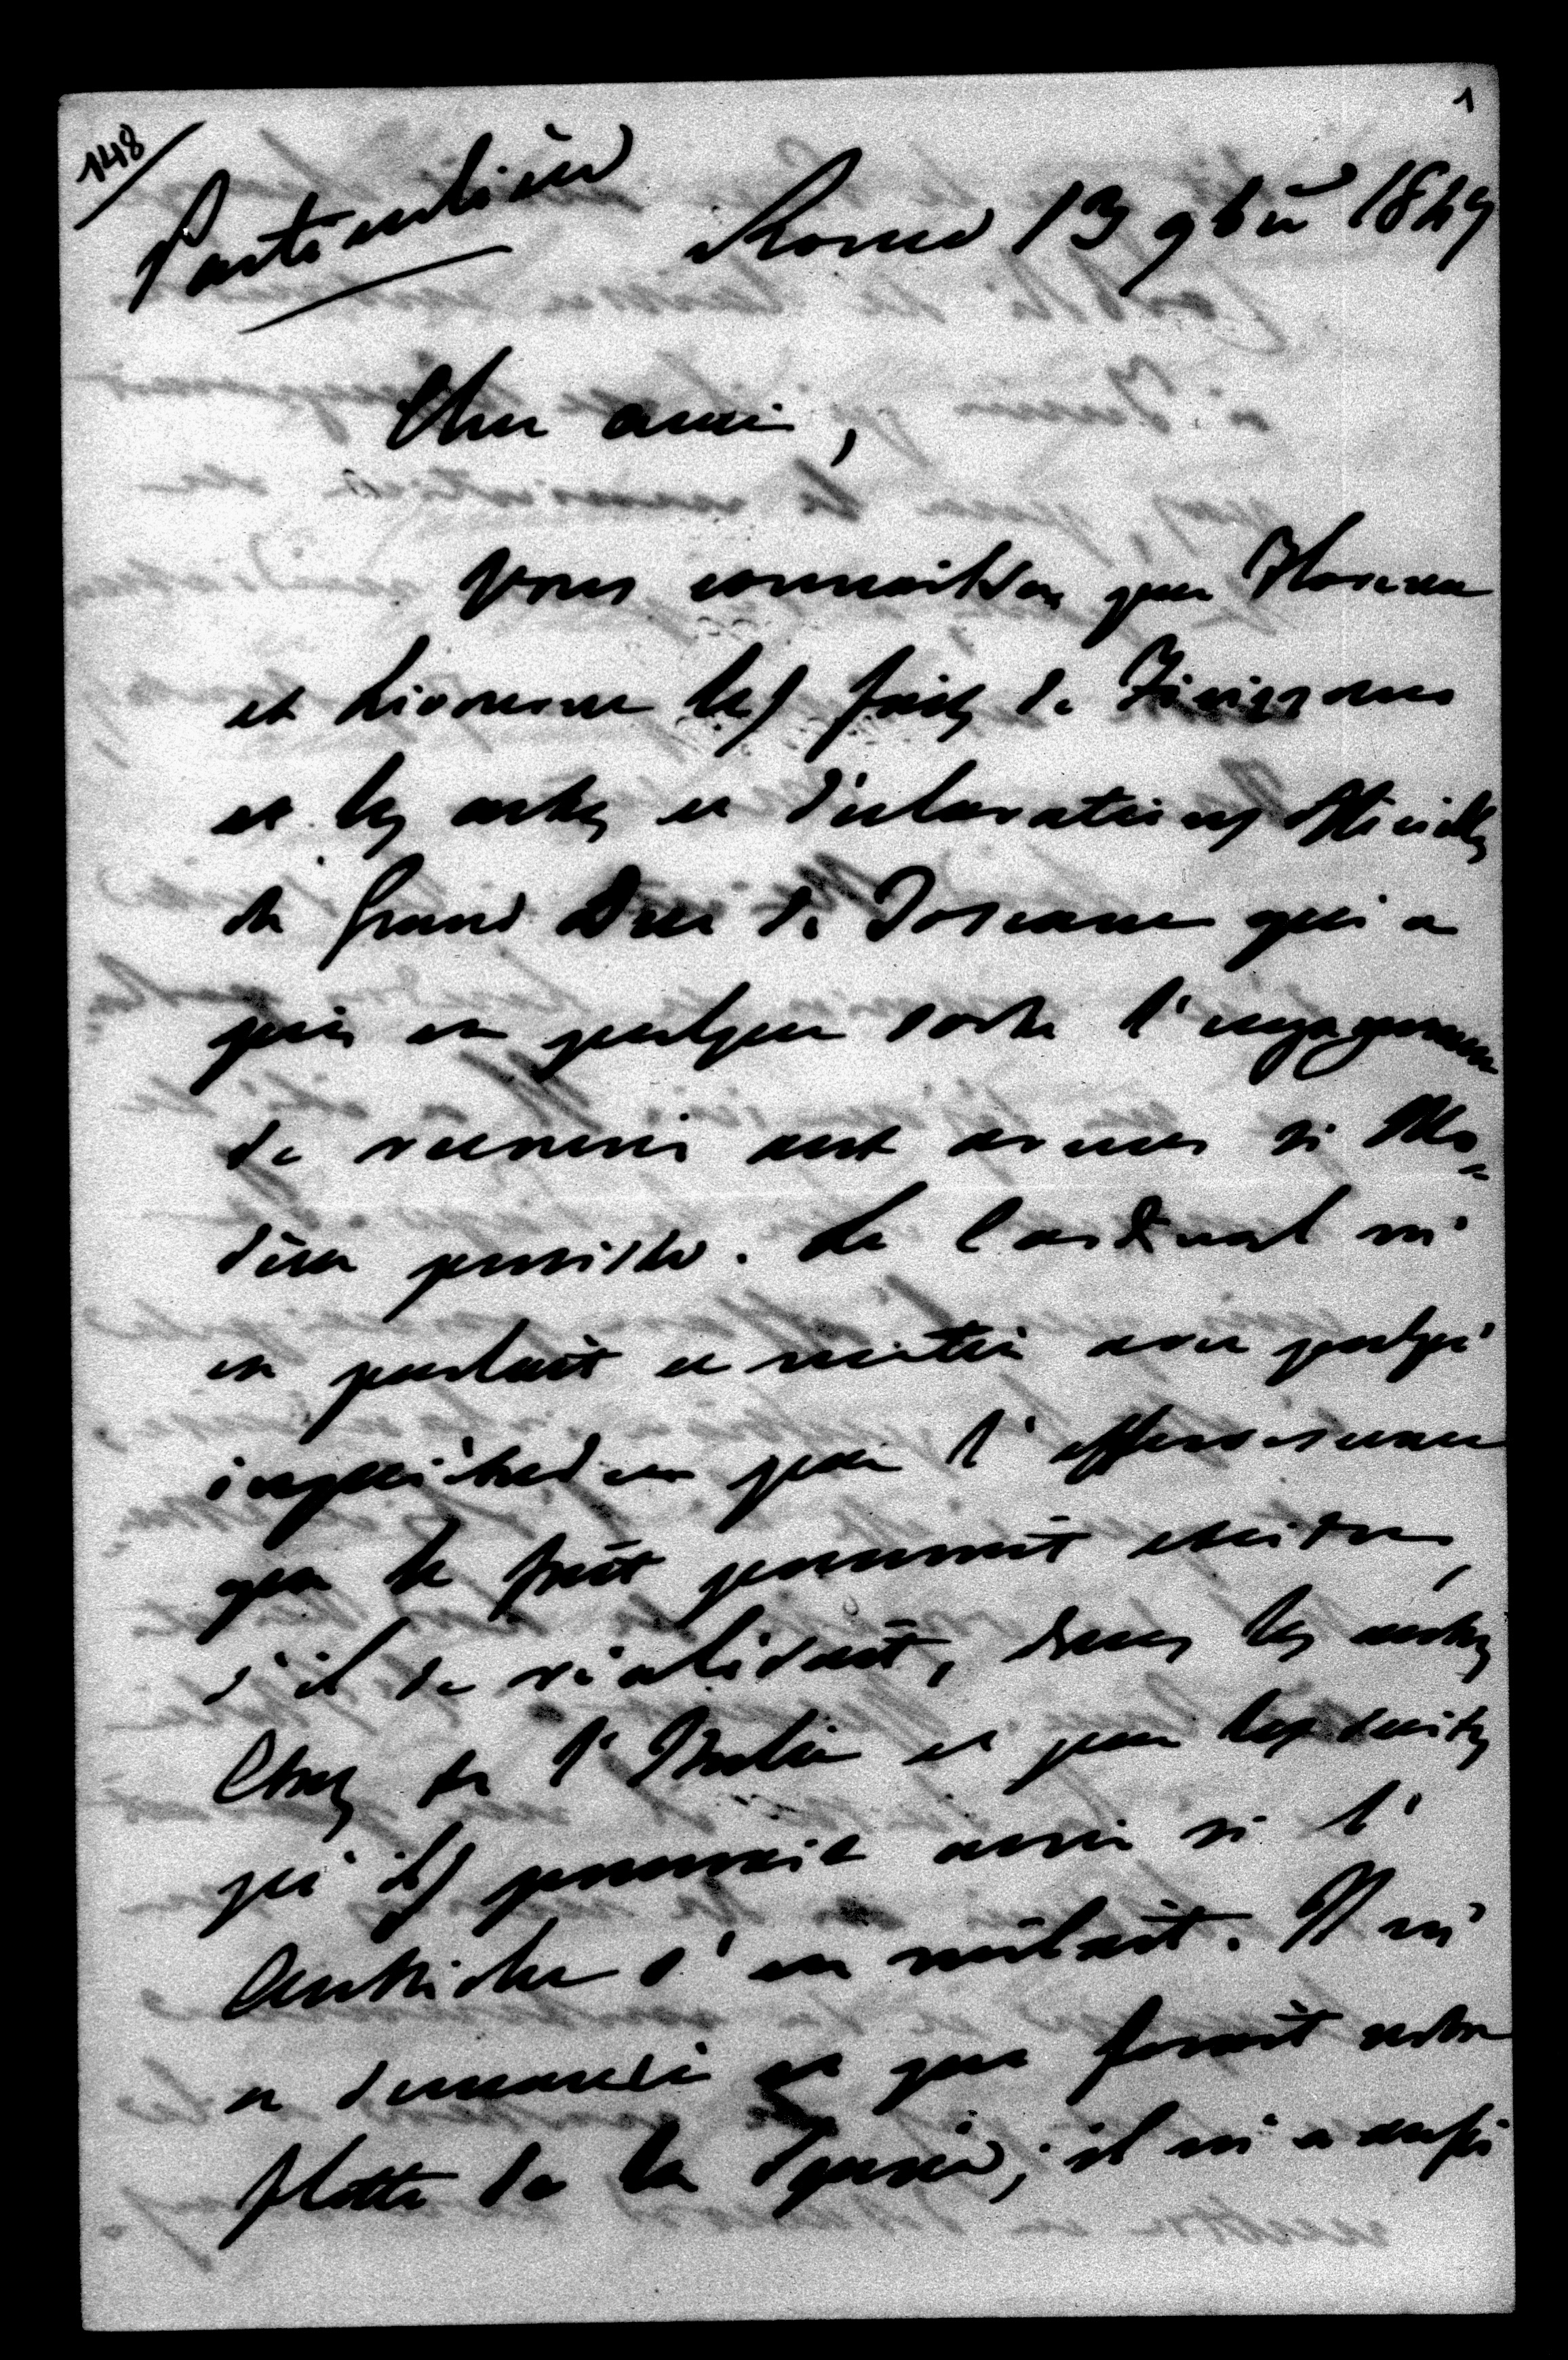 148
1
Particulière
Rome 13 9bre 1849
Cher ami,
Vous connaitrez par Florence
et Livourne les faits de Fivizzano
et les actes et déclarations officielles
du Grand Duc de Toscane qui a
pris en quelque sorte l'engagement
de recourir aux armes si Mo=
dène persiste. Le Cardinal m'
en parlait ce matin avec quelqu'
inquiétude par l'effervescence
que le fait pourrait exciter,
s'il se réalisait, dans les autres
Etats de l'Italie et par les suites
qu'ils pourrait avoir si l'
Autriche s'en mêlait. Il m'
a demandé ce que ferait notre
flotte de la Spezia; il m'a aussi